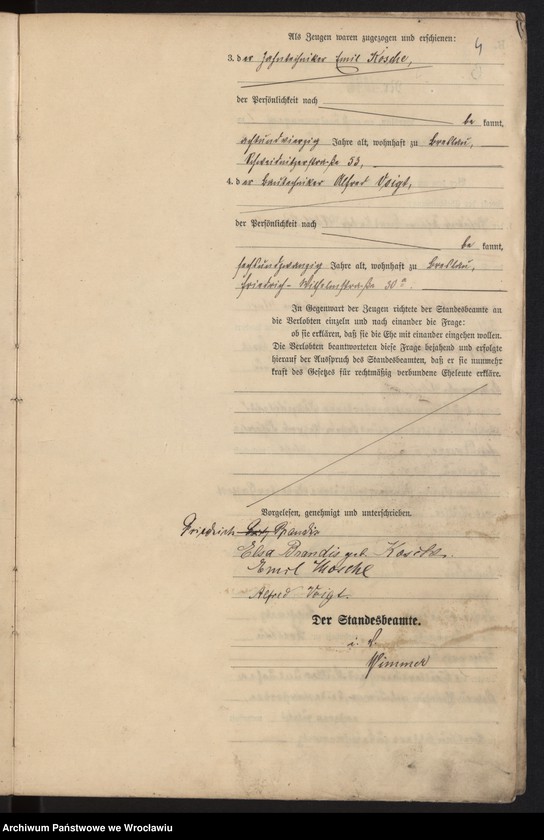 4
Als Zeugen waren zugezogen und erschienen:
3. der Zahntechniker Emil Kosche,
der Persönlichkeit nach
be kannt,
achtundvierzig Jahre alt, wohnhaft zu Breslau,
Schweidnitzerstraße 53,
4. der Bautechniker Alfred Voigt,
der Persönlichkeit nach
be kannt,
sechsundzwanzig Jahre alt, wohnhaft zu Breslau,
Friedrich-Wilhelmstraße 30a.
In Gegenwart der Zeugen richtete der Standesbeamte an
die Verlobten einzeln und nach einander die Frage:
ob sie erklären, daß sie die Ehe mit einander eingehen wollen.
Die Verlobten beantworteten diese Frage bejahend und erfolgte
hierauf der Ausspruch des Standesbeamten, daß er sie nunmehr
kraft des Gesetzes für rechtmäßig verbundene Eheleute erkläre.
Vorgelesen, genehmigt und unterschrieben.
Friedrich Brandis
Elsa Brandis geb. Kosche.
Emil Kosche
Alfred Voigt.
Der Standesbeamte.
i. V.
Wimmer
Archiwum Państwowe we Wrocławiu